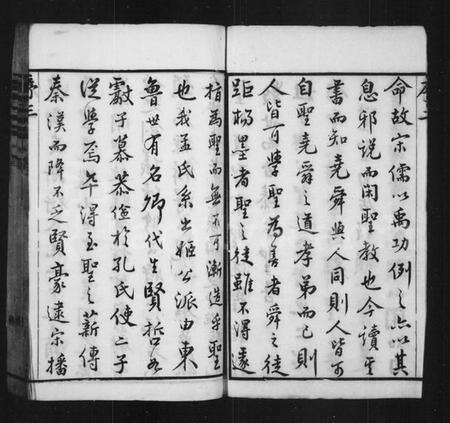 命故宗儒以禹功例之亦以其
息邪說而閑聖教也今讀其
書而知堯舜與人同則人皆可
自聖堯舜之道孝弟而已則
人皆可學聖為善者舜之徒
距楊墨者聖之徒雖不得遽
指為聖而無不可漸造乎聖
也我孟氏系出姬公派由東
魯世有名卿代生賢哲
獻子慕恭儉於孔氏使二子
從學焉卒得至聖之薪傳
秦漢而降不乏賢豪逮宋播
序三